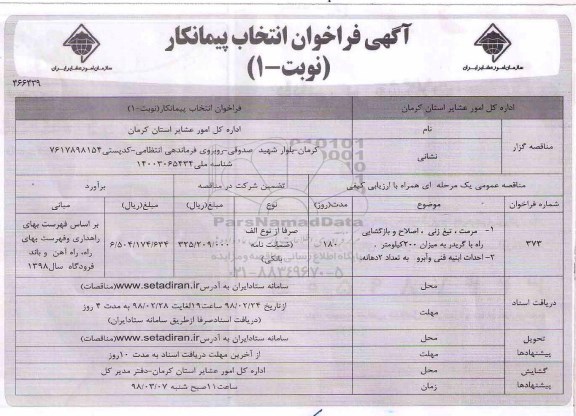 آگهی فراخوان انتخاب پیمانکار
(نوبت-۱)
سازمان امور عشایر ایران
سازمان امور عشایر ایران
۴۶۶۳۳۹
اداره کل امور عشایر استان کرمان
فراخوان انتخاب پیمانکار(نوبت-۱)
مناقصه گزار
نام
اداره کل امور عشایر استان کرمان
نشانی
کرمان-بلوار شهید صدوقی-روبروی فرماندهی انتظامی-کدپستی۷۶۱۷۸۹۸۱۵۴
شناسه ملی۱۴۰۰۳۰۶۵۴۳۴
مناقصه عمومی یک مرحله ای همراه با ارزیابی کیفی
تضمین شرکت در مناقصه
برآورد
شماره فراخوان
موضوع
مدت(روز)
نوع
مبلغ(ریال)
مبلغ(ریال)
مبانی
۳۷۳
۱- مرمت ، تیغ زنی ، اصلاح و بازگشایی
راه با گریدر به میزان ۲۰۰کیلومتر .
۲- احداث ابنیه فنی وآبرو به تعداد ۲دهانه.
۱۸۰
صرفا از نوع الف
(ضمانت نامه
بانکی)
۳۲۵/۲۰۹/۰۰۰
۶/۵۰۴/۱۷۴/۶۳۴
بر اساس فهرست بهای
راهداری وفهرست بهای
راه، راه آهن و باند
فرودگاه سال۱۳۹۸
ParsNamadData
۰۲۱-۸۸۳۴۹۶۷۰-۵
دریافت اسناد
محل
سامانه ستادایران به آدرسwww.setadiran.ir(مناقصات)
مهلت
ازتاریخ ۹۸/۰۲/۲۴ ساعت۱۹الغایت ۹۸/۰۲/۲۸ به مدت ۴ روز
(دریافت اسنادصرفا ازطریق سامانه ستادایران)
تحویل پیشنهادها
محل
سامانه ستادایران به آدرسwww.setadiran.ir(مناقصات)
مهلت
از آخرین مهلت دریافت اسناد به مدت ۱۰روز
گشایش پیشنهادها
محل
اداره کل امور عشایر استان کرمان-دفتر مدیر کل
زمان
ساعت۱۱صبح شنبه ۹۸/۰۳/۰۷